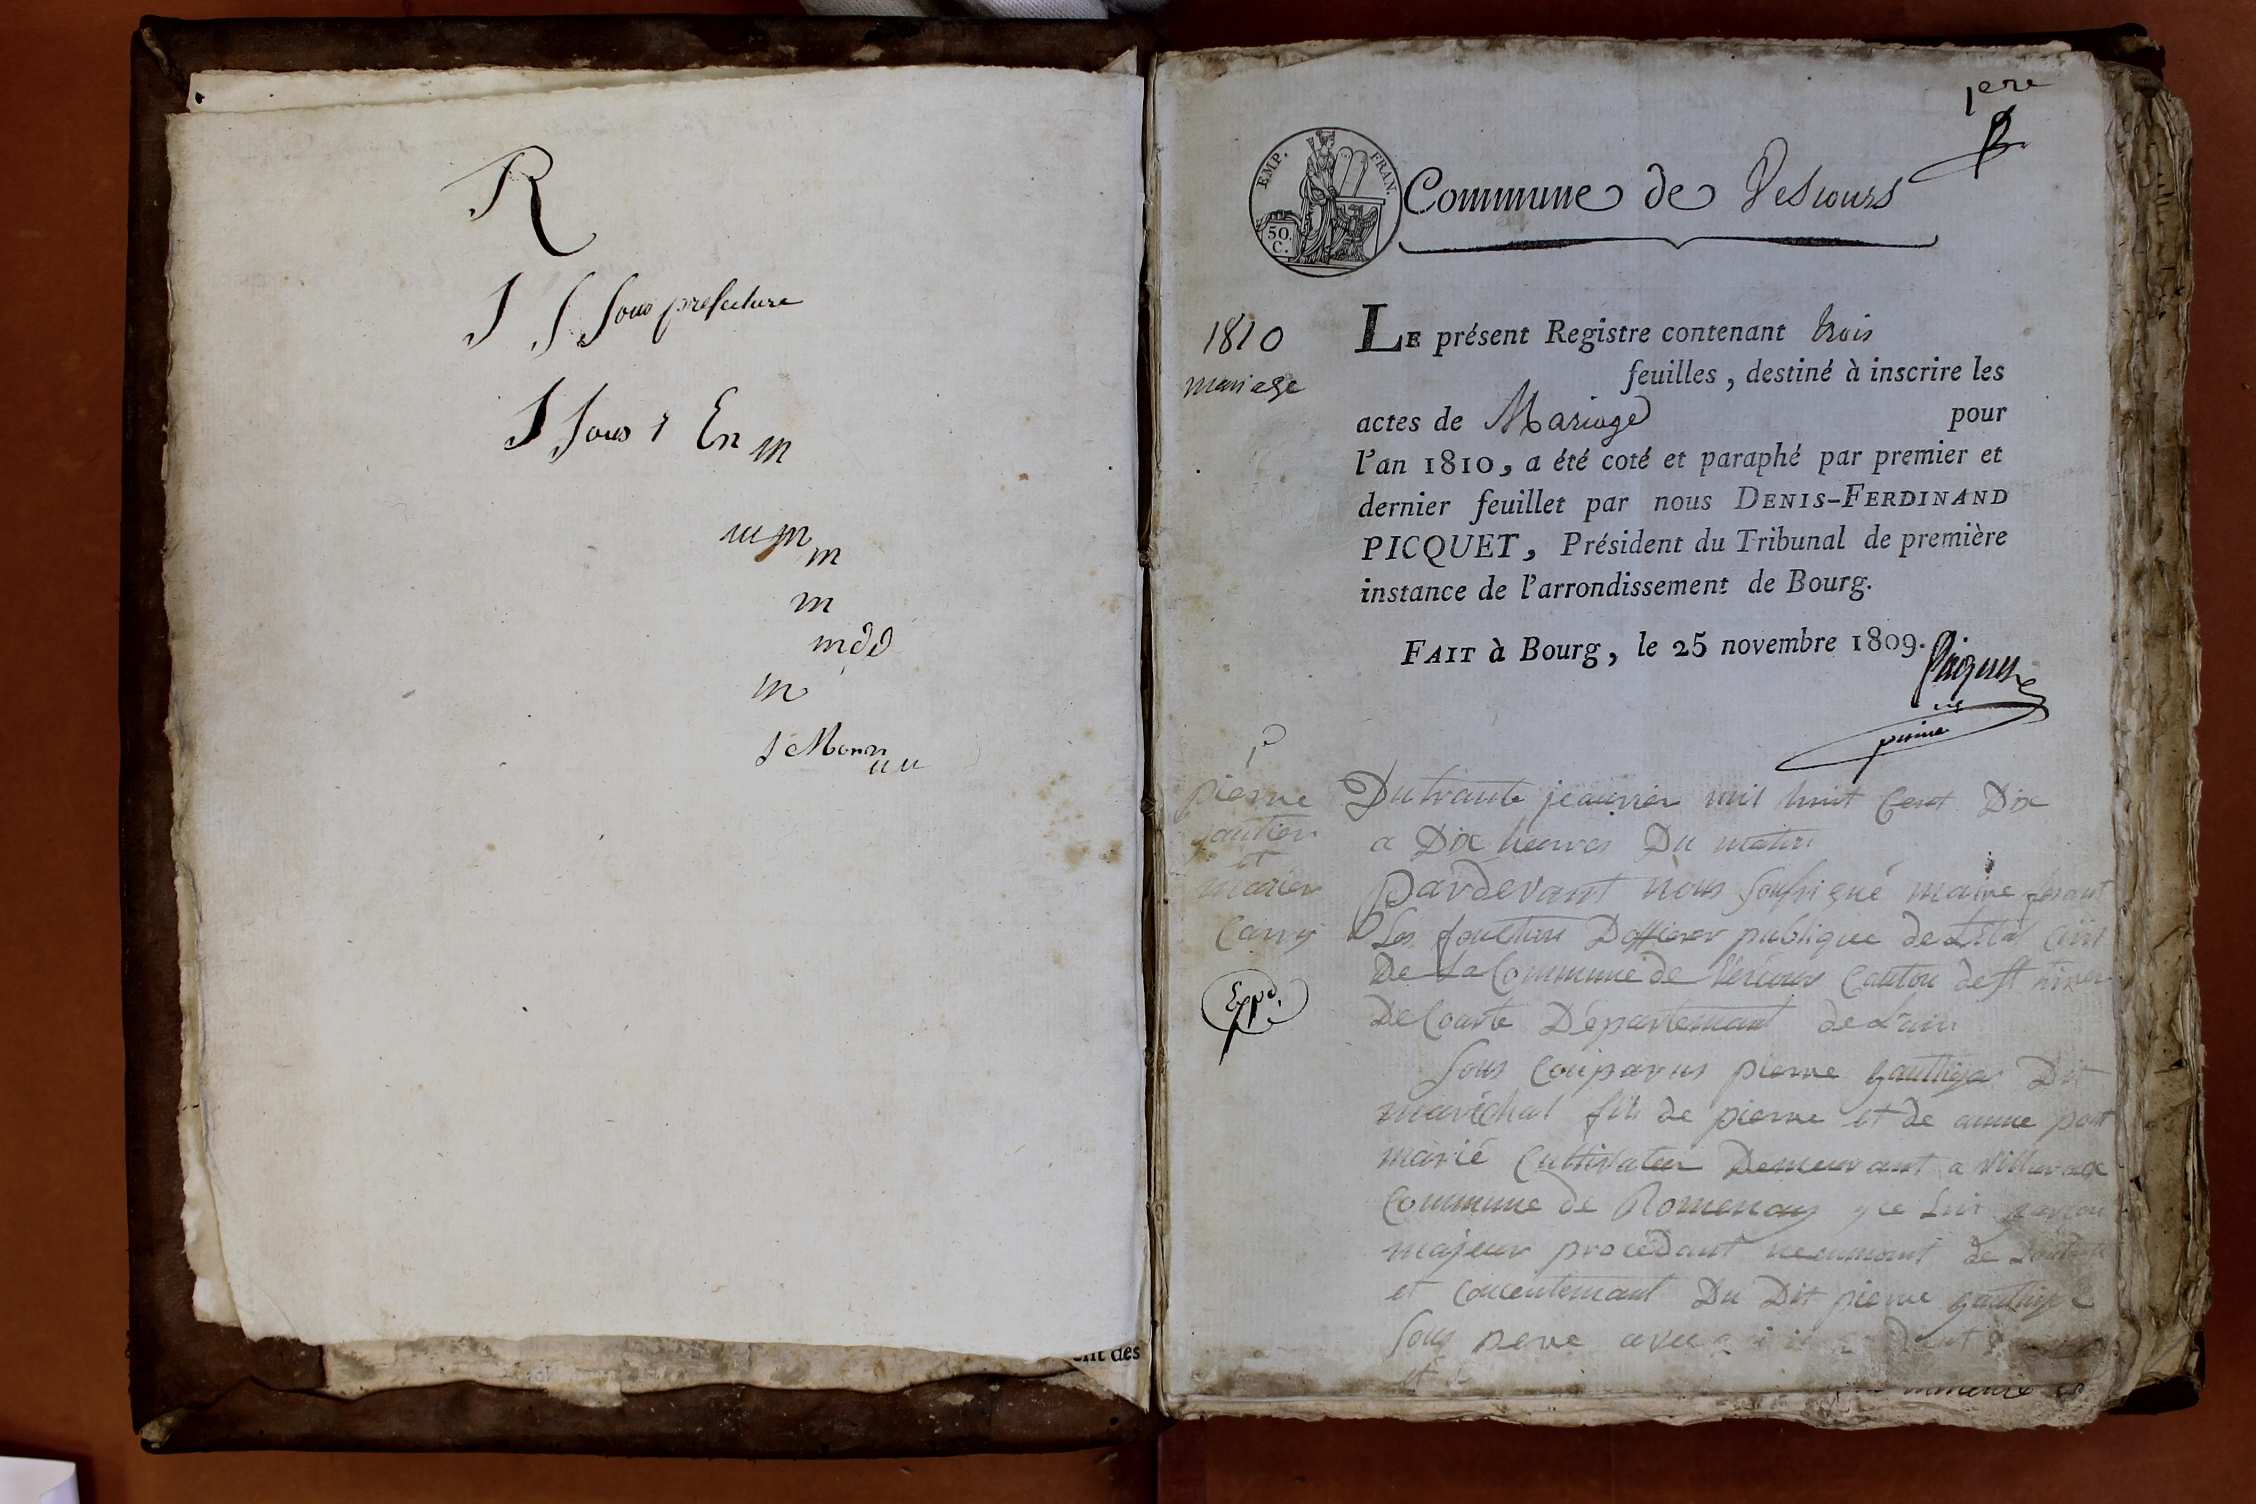 R
J S Sous prefecture
J Sous 1 En m
m m
m
m
m d d
m
J Monn
uu
ent des
1ere
EMP. FRAN.
50.
C.
Commune de Vescours
1810
mariage
LE présent Registre contenant trois
feuilles, destiné à inscrire les
actes de Mariage pour
l'an 1810, a été coté et paraphé par premier et
dernier feuillet par nous DENIS-FERDINAND
PICQUET, Président du Tribunal de première
instance de l'arrondissement de Bourg.
FAIT à Bourg, le 25 novembre 1809.
Picquet
pierre
gautier
et
marier
Carry
Du trante jeanvier mil huit Cent Dix
a Dix heures Du matin
Pardevant nous Sousigné maire fesant
Les fonction Dofficier publique de Létat Civil
De La Commune de Vescours Canton de st trivier
De Courte Departemant de L'ain
Sous Comparus pierre gauthier Dit
maréchal fils de pierre et de anne
marié Cultivateur Demeurant a
Commune de Romenay
majeur procédant
et Concentemant Du Dit pierre gauthier
Sous pere
et